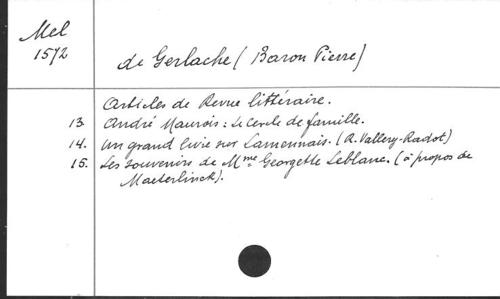 Mel
1572
de Gerlache (Baron Pierre)
Articles de Revue littéraire.
13. André Maurois : Le Cercle de famille.
14. Un grand livre sur Lamennais. (R. Vallery-Radot)
15. Les souvenirs de Mme Georgette Leblanc. (à propos de
Maeterlinck).